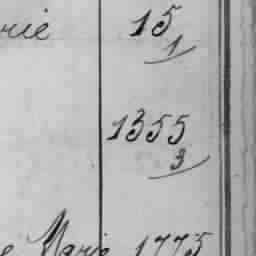 rie 15
1
1355
3
e Marie 1775